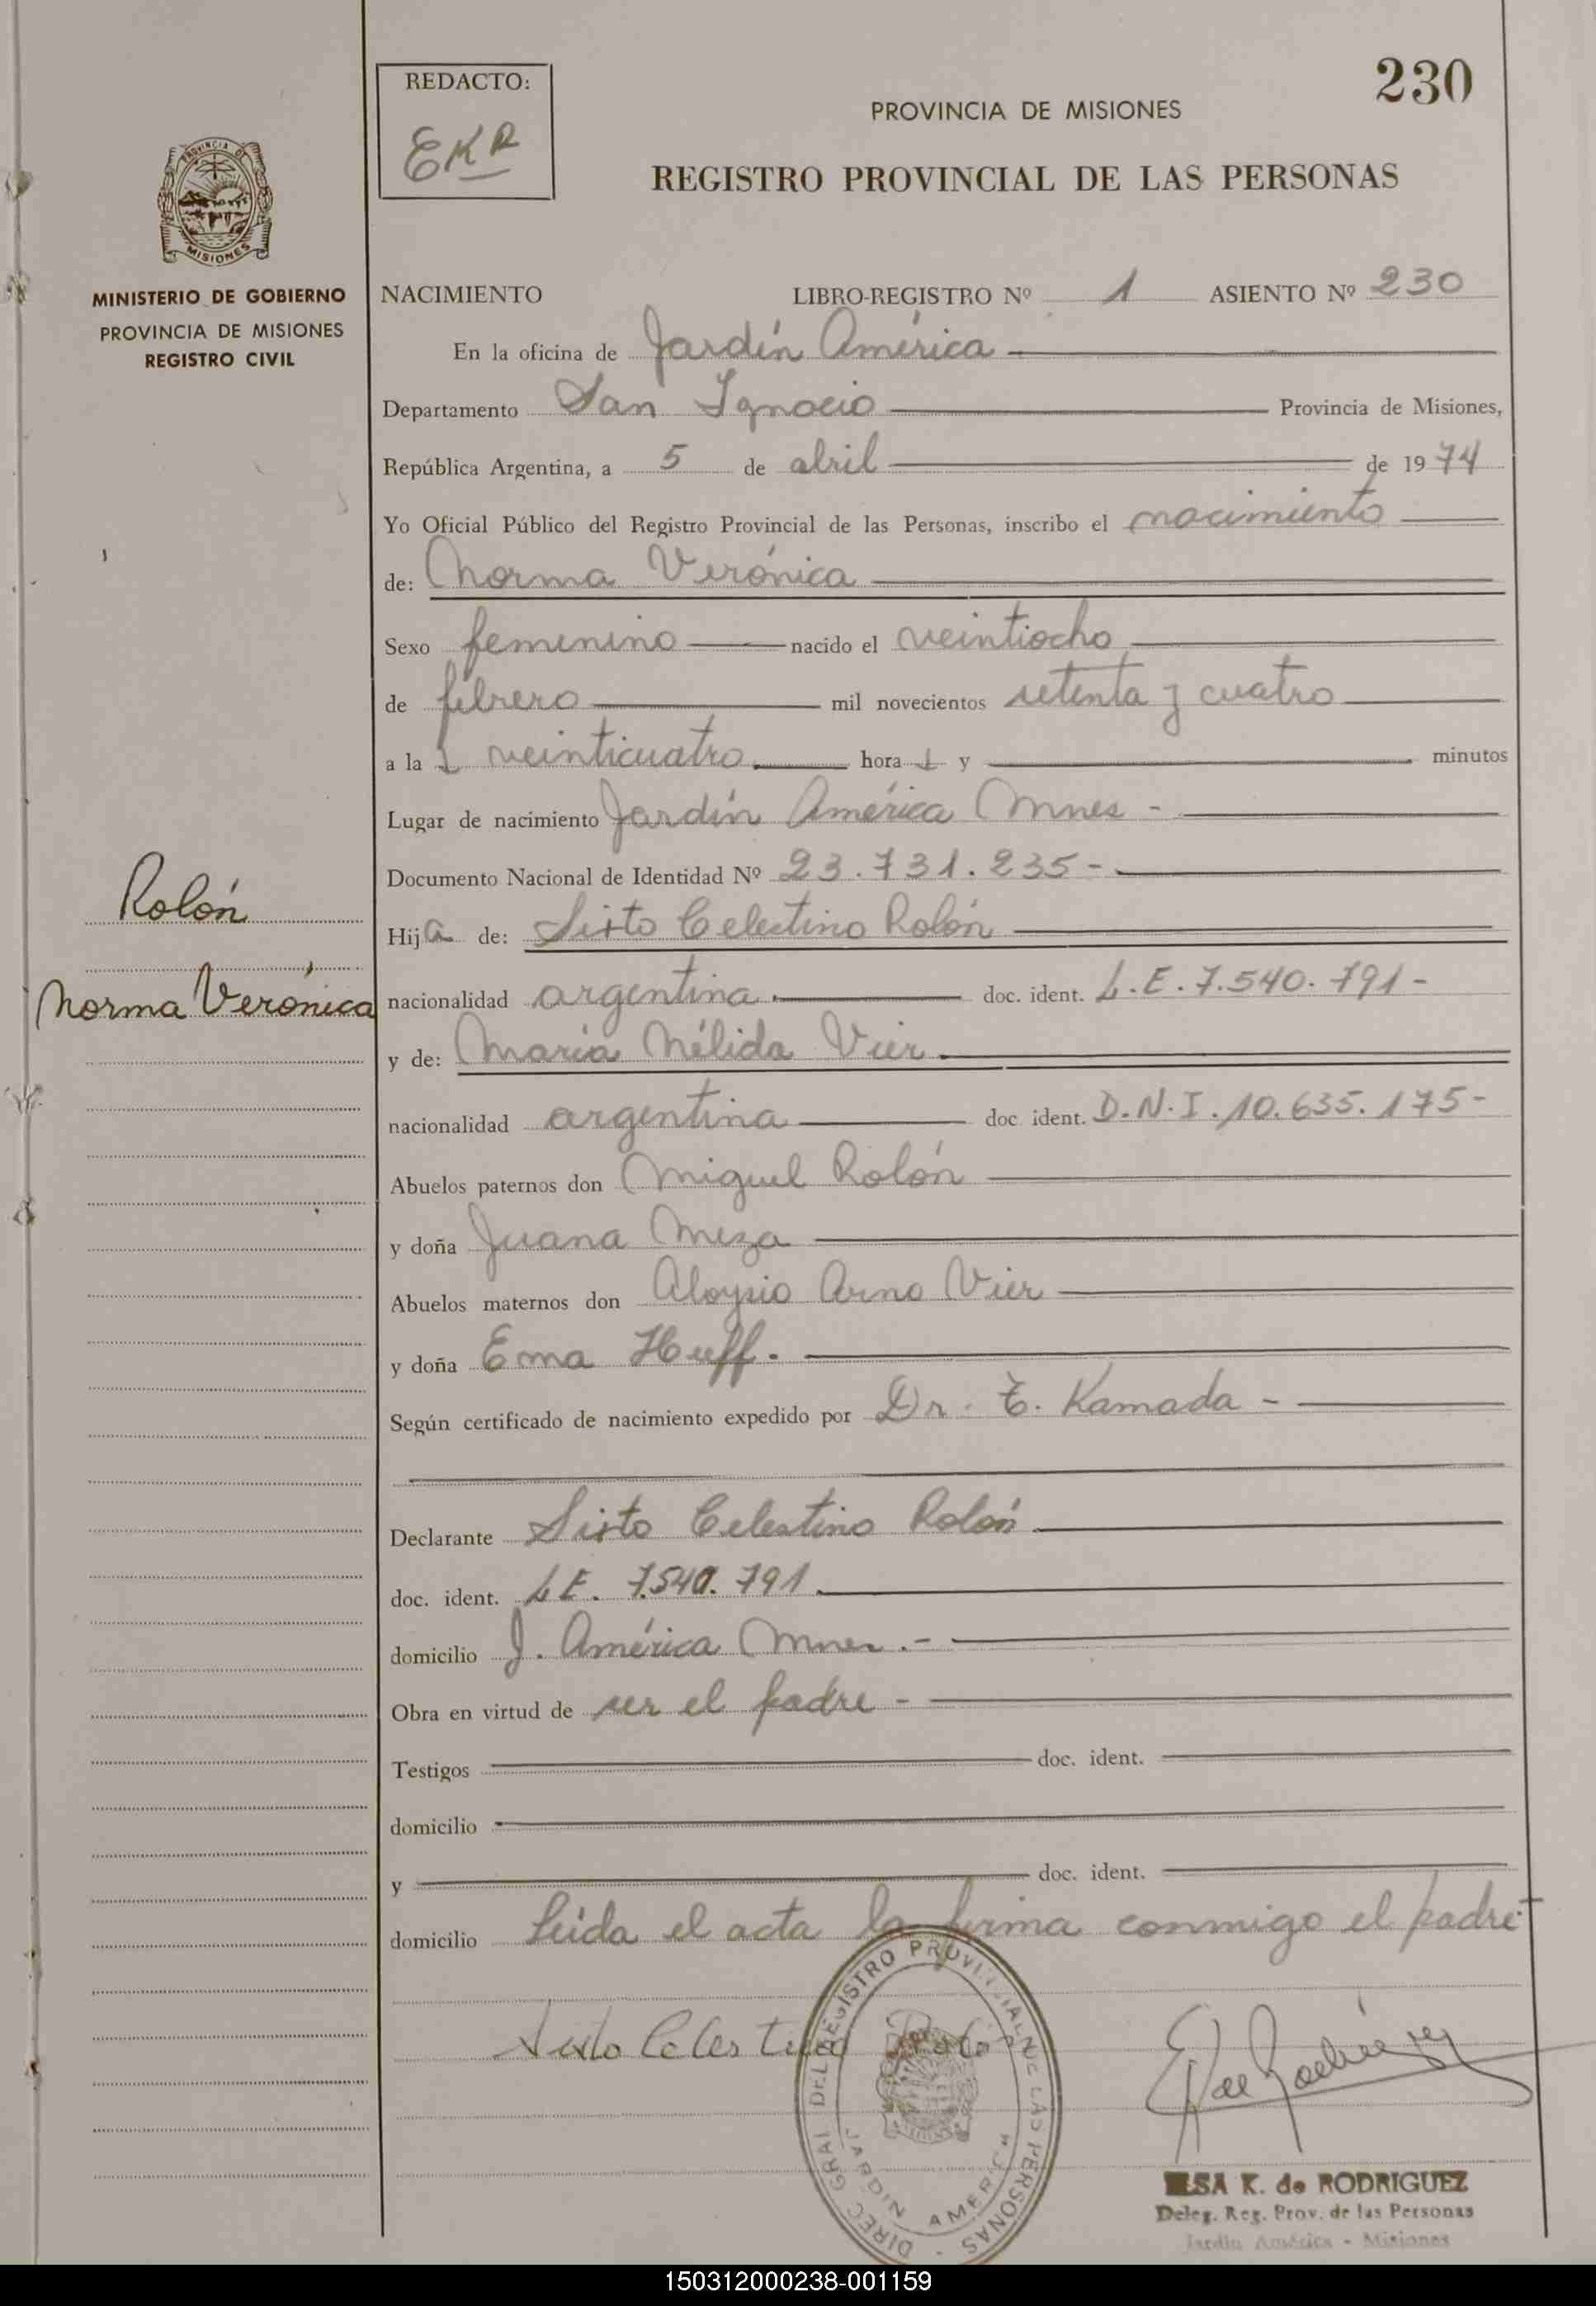 230
REDACTO:
EKR
PROVINCIA DE MISIONES
REGISTRO PROVINCIAL DE LAS PERSONAS
PROVINCIA DE
MISIONES
MINISTERIO DE GOBIERNO
PROVINCIA DE MISIONES
REGISTRO CIVIL
NACIMIENTO LIBRO-REGISTRO Nº 1 ASIENTO Nº 230
En la oficina de Jardín América
Departamento San Ignacio Provincia de Misiones,
República Argentina, a 5 de abril de 1974
Yo Oficial Público del Registro Provincial de las Personas, inscribo el nacimiento
de: Norma Verónica
Sexo femenino nacido el veintiocho
de febrero mil novecientos setenta y cuatro
a la s veinticuatro hora s y minutos
Lugar de nacimiento Jardín América Mnes -
Documento Nacional de Identidad Nº 23.731.235-
Rolón
Hija de: Sixto Celestino Rolón
Norma Verónica
nacionalidad argentina doc. ident. L.E. 7.540.791-
y de: María Nélida Vier
nacionalidad argentina doc ident. D.N.I. 10.635.175-
Abuelos paternos don Miguel Rolón
y doña Juana Meza
Abuelos maternos don Aloysio Arno Vier
y doña Ema Huff.
Según certificado de nacimiento expedido por Dr. T. Kamada -
Declarante Sixto Celestino Rolón
doc. ident. L.E. 7.540.791
domicilio J. América Mnes.-
Obra en virtud de ser el padre -
Testigos doc. ident.
domicilio
y doc. ident.
domicilio Leída el acta la firma conmigo el padre-
Sixto Celestino Rolon
DIREC GRAL DEL REGISTRO PROVINCIAL DE LAS PERSONAS -
JARDIN AMERICA
E K de Rodríguez
ELSA K. de RODRIGUEZ
Deleg. Reg. Prov. de las Personas
Jardín América - Misiones
150312000238-001159